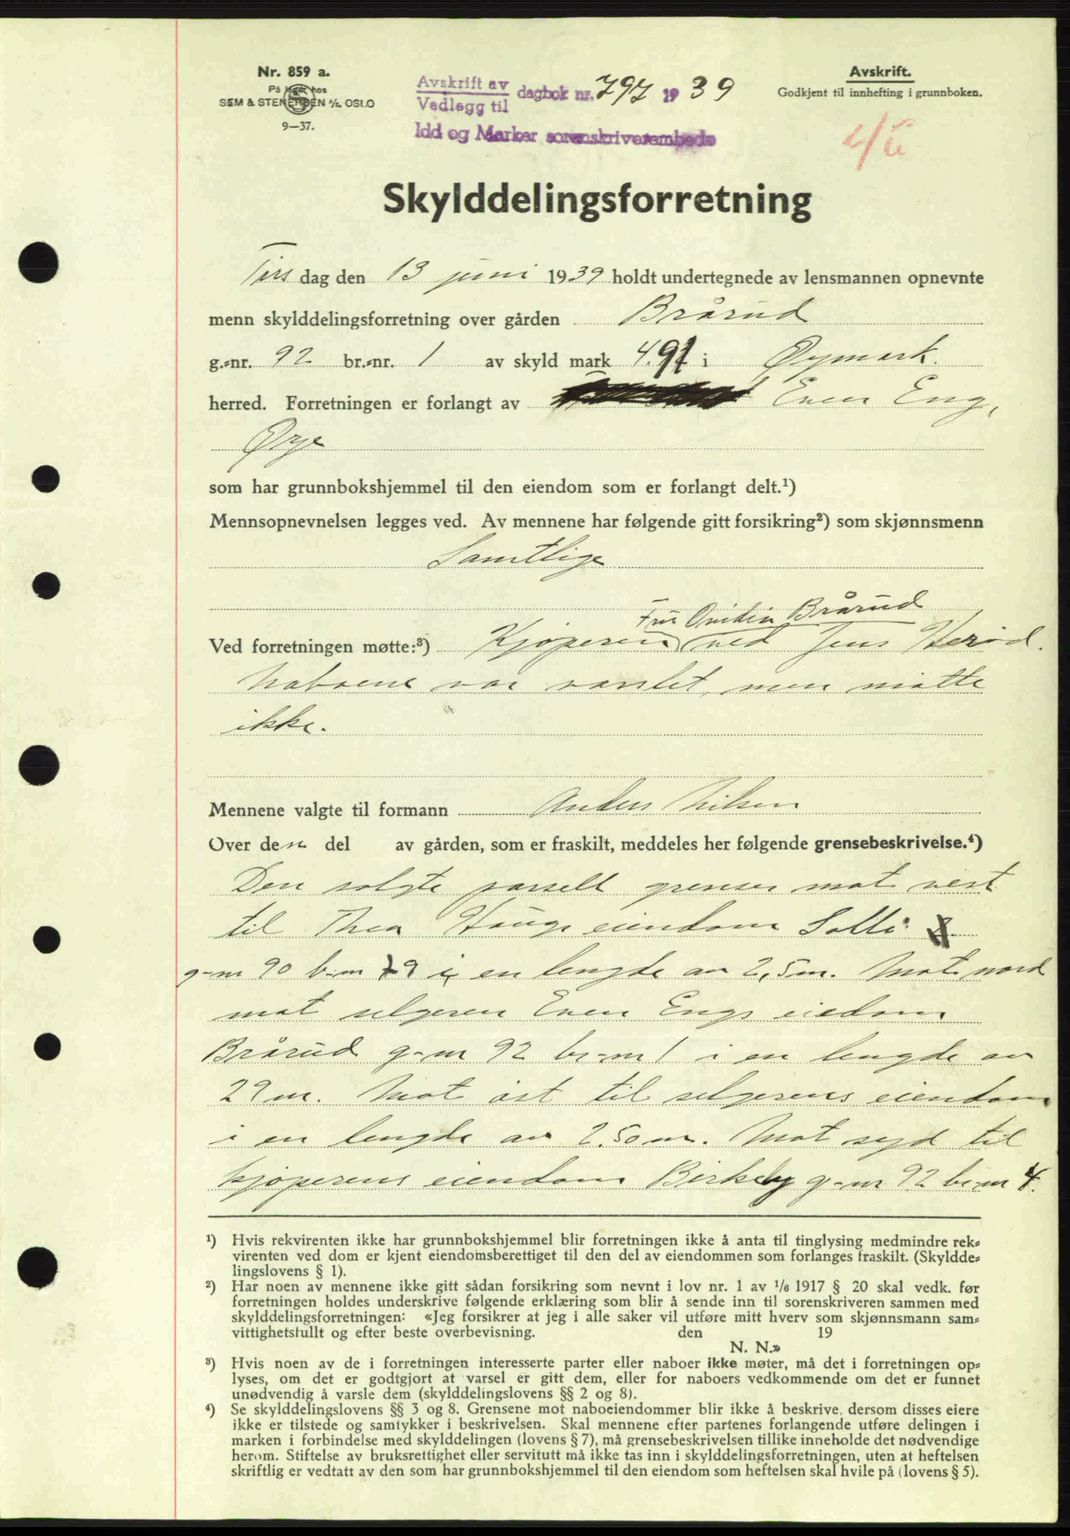 Nr. 859 a.
På lager hos
SEM & STENERSEN A/S, OSLO
9—37.
Avskrift av
Vedlegg til
dagbok nr. 797 1939
Idd og Marker sorenskriverembede
Avskrift.
Godkjent til innhefting i grunnboken.
Skylddelingsforretning
Tirsdag den 13 juni 1939 holdt undertegnede av lensmannen opnevnte
menn skylddelingsforretning over gården Brårud
g.-nr. 92 br.-nr. 1 av skyld mark 4.91 i Øymark
herred. Forretningen er forlangt av Even Eng,
Ørje
som har grunnbokshjemmel til den eiendom som er forlangt delt.¹)
Mennsopnevnelsen legges ved. Av mennene har følgende gitt forsikring²) som skjønnsmenn
Samtlige
Fru Ovidia Brårud
Ved forretningen møtte:³) Kjøperen ved Jens Herød.
Naboene var varslet, men møtte
ikke.
Mennene valgte til formann Anders Nilsen
Over den del av gården, som er fraskilt, meddeles her følgende grensebeskrivelse.⁴)
Den solgte parsell grenser mot vest
til Thea Haugs eiendom Solli
g-nr 90 b-nr 79 i en lengde av 2,5 m. Mot nord
mot selgeren Even Engs eiedom
Brårud g-nr 92 br-nr 1 i en lengde av
29 m. Mot øst til selgerens eiendom
i en lengde av 2.50 m. Mot syd til
kjøperens eiendom Birkeby g-nr 92 br-nr 4.
¹) Hvis rekvirenten ikke har grunnbokshjemmel blir forretningen ikke å anta til tinglysing medmindre rek-
virenten ved dom er kjent eiendomsberettiget til den del av eiendommen som forlanges fraskilt. (Skyldde-
lingslovens § 1).
²) Har noen av mennene ikke gitt sådan forsikring som nevnt i lov nr. 1 av 1/6 1917 § 20 skal vedk. før
forretningen holdes underskrive følgende erklæring som blir å sende inn til sorenskriveren sammen med
skylddelingsforretningen: «Jeg forsikrer at jeg i alle saker vil utføre mitt hverv som skjønnsmann sam-
vittighetsfullt og efter beste overbevisning. den 19
N. N.»
³) Hvis noen av de i forretningen interesserte parter eller naboer ikke møter, må det i forretningen op-
lyses, om det er godtgjort at varsel er gitt dem, eller for naboers vedkommende om det er funnet
unødvendig å varsle dem (skylddelingslovens §§ 2 og 8).
⁴) Se skylddelingslovens §§ 3 og 8. Grensene mot naboeiendommer blir ikke å beskrive, dersom disses eiere
ikke er tilstede og samtykker i beskrivelsen. Skal mennene efter partenes forlangende utføre delingen i
marken i forbindelse med skylddelingen (lovens § 7), må grensebeskrivelsen tillike inneholde det nødvendige
herom. Stiftelse av bruksrettighet eller servitutt må ikke tas inn i skylddelingsforretningen, uten at heftelsen
skriftlig er vedtatt av den som har grunnbokshjemmel til den eiendom som heftelsen skal hvile på (lovens § 5).